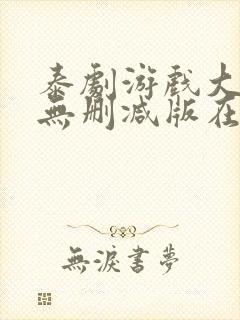 泰劇游戲大
無删减版在
無淚書夢